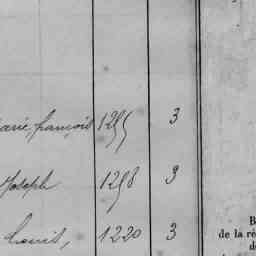 Marie, françois 1295 3
Joseph 1298 3
Louis, 1220 3
B
de la ré
de